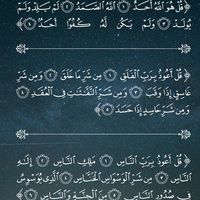 ﴿ قُلْ هُوَ اللَّهُ أَحَدٌ ۝١ اللَّهُ الصَّمَدُ ۝٢ لَمْ يَلِدْ وَلَمْ
يُولَدْ ۝٣ وَلَمْ يَكُن لَّهُ كُفُوًا أَحَدٌ ۝٤ ﴾
﴿ قُلْ أَعُوذُ بِرَبِّ الْفَلَقِ ۝١ مِن شَرِّ مَا خَلَقَ ۝٢ وَمِن شَرِّ
غَاسِقٍ إِذَا وَقَبَ ۝٣ وَمِن شَرِّ النَّفَّاثَاتِ فِي الْعُقَدِ ۝٤
وَمِن شَرِّ حَاسِدٍ إِذَا حَسَدَ ۝٥ ﴾
﴿ قُلْ أَعُوذُ بِرَبِّ النَّاسِ ۝١ مَلِكِ النَّاسِ ۝٢ إِلَٰهِ
النَّاسِ ۝٣ مِن شَرِّ الْوَسْوَاسِ الْخَنَّاسِ ۝٤ الَّذِي يُوَسْوِسُ
فِي صُدُورِ النَّاسِ ۝٥ مِنَ الْجِنَّةِ وَالنَّاسِ ۝٦ ﴾